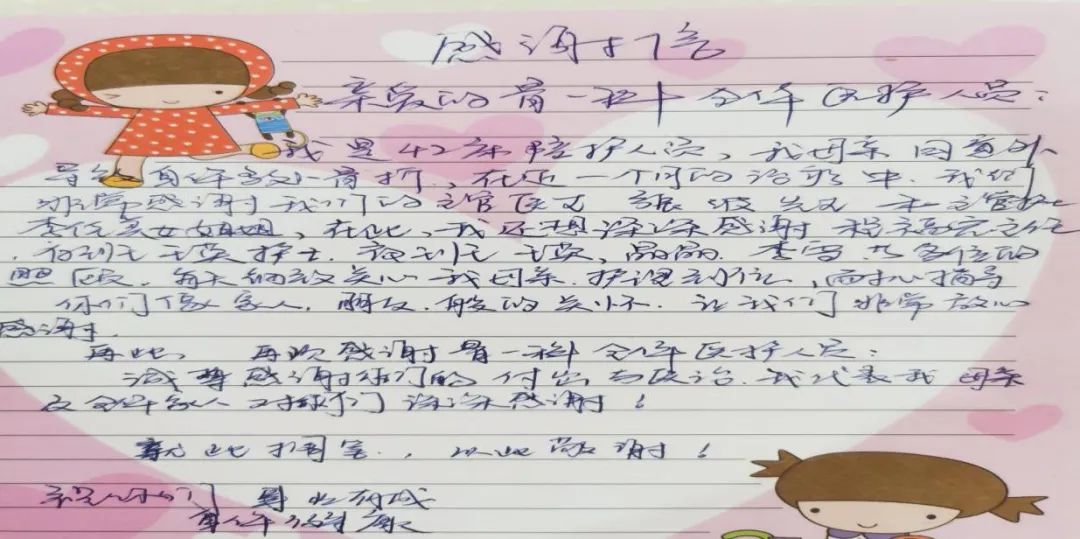 感谢信
亲爱的骨一科全体医护人员：
我是42床陪护人员，我母亲因意外
导致身体多处骨折，在近一个月的治疗中，我们
非常感谢我们的主管医生 和主管护士
美女姐姐，在此，我还想深深感谢 主任
护士 王 晶晶 李雪 多位的
照顾，每天细致关心我母亲，护理到位，耐心指导
你们像家人，朋友，般的关怀，让我们非常放心
感谢
再此，再次感谢骨一科全体医护人员：
诚挚感谢你们的付出与医治，我代表我母亲
及全体家人对你们深深感谢！
就此搁笔，以此致谢！
祝你们 有成
身体健康